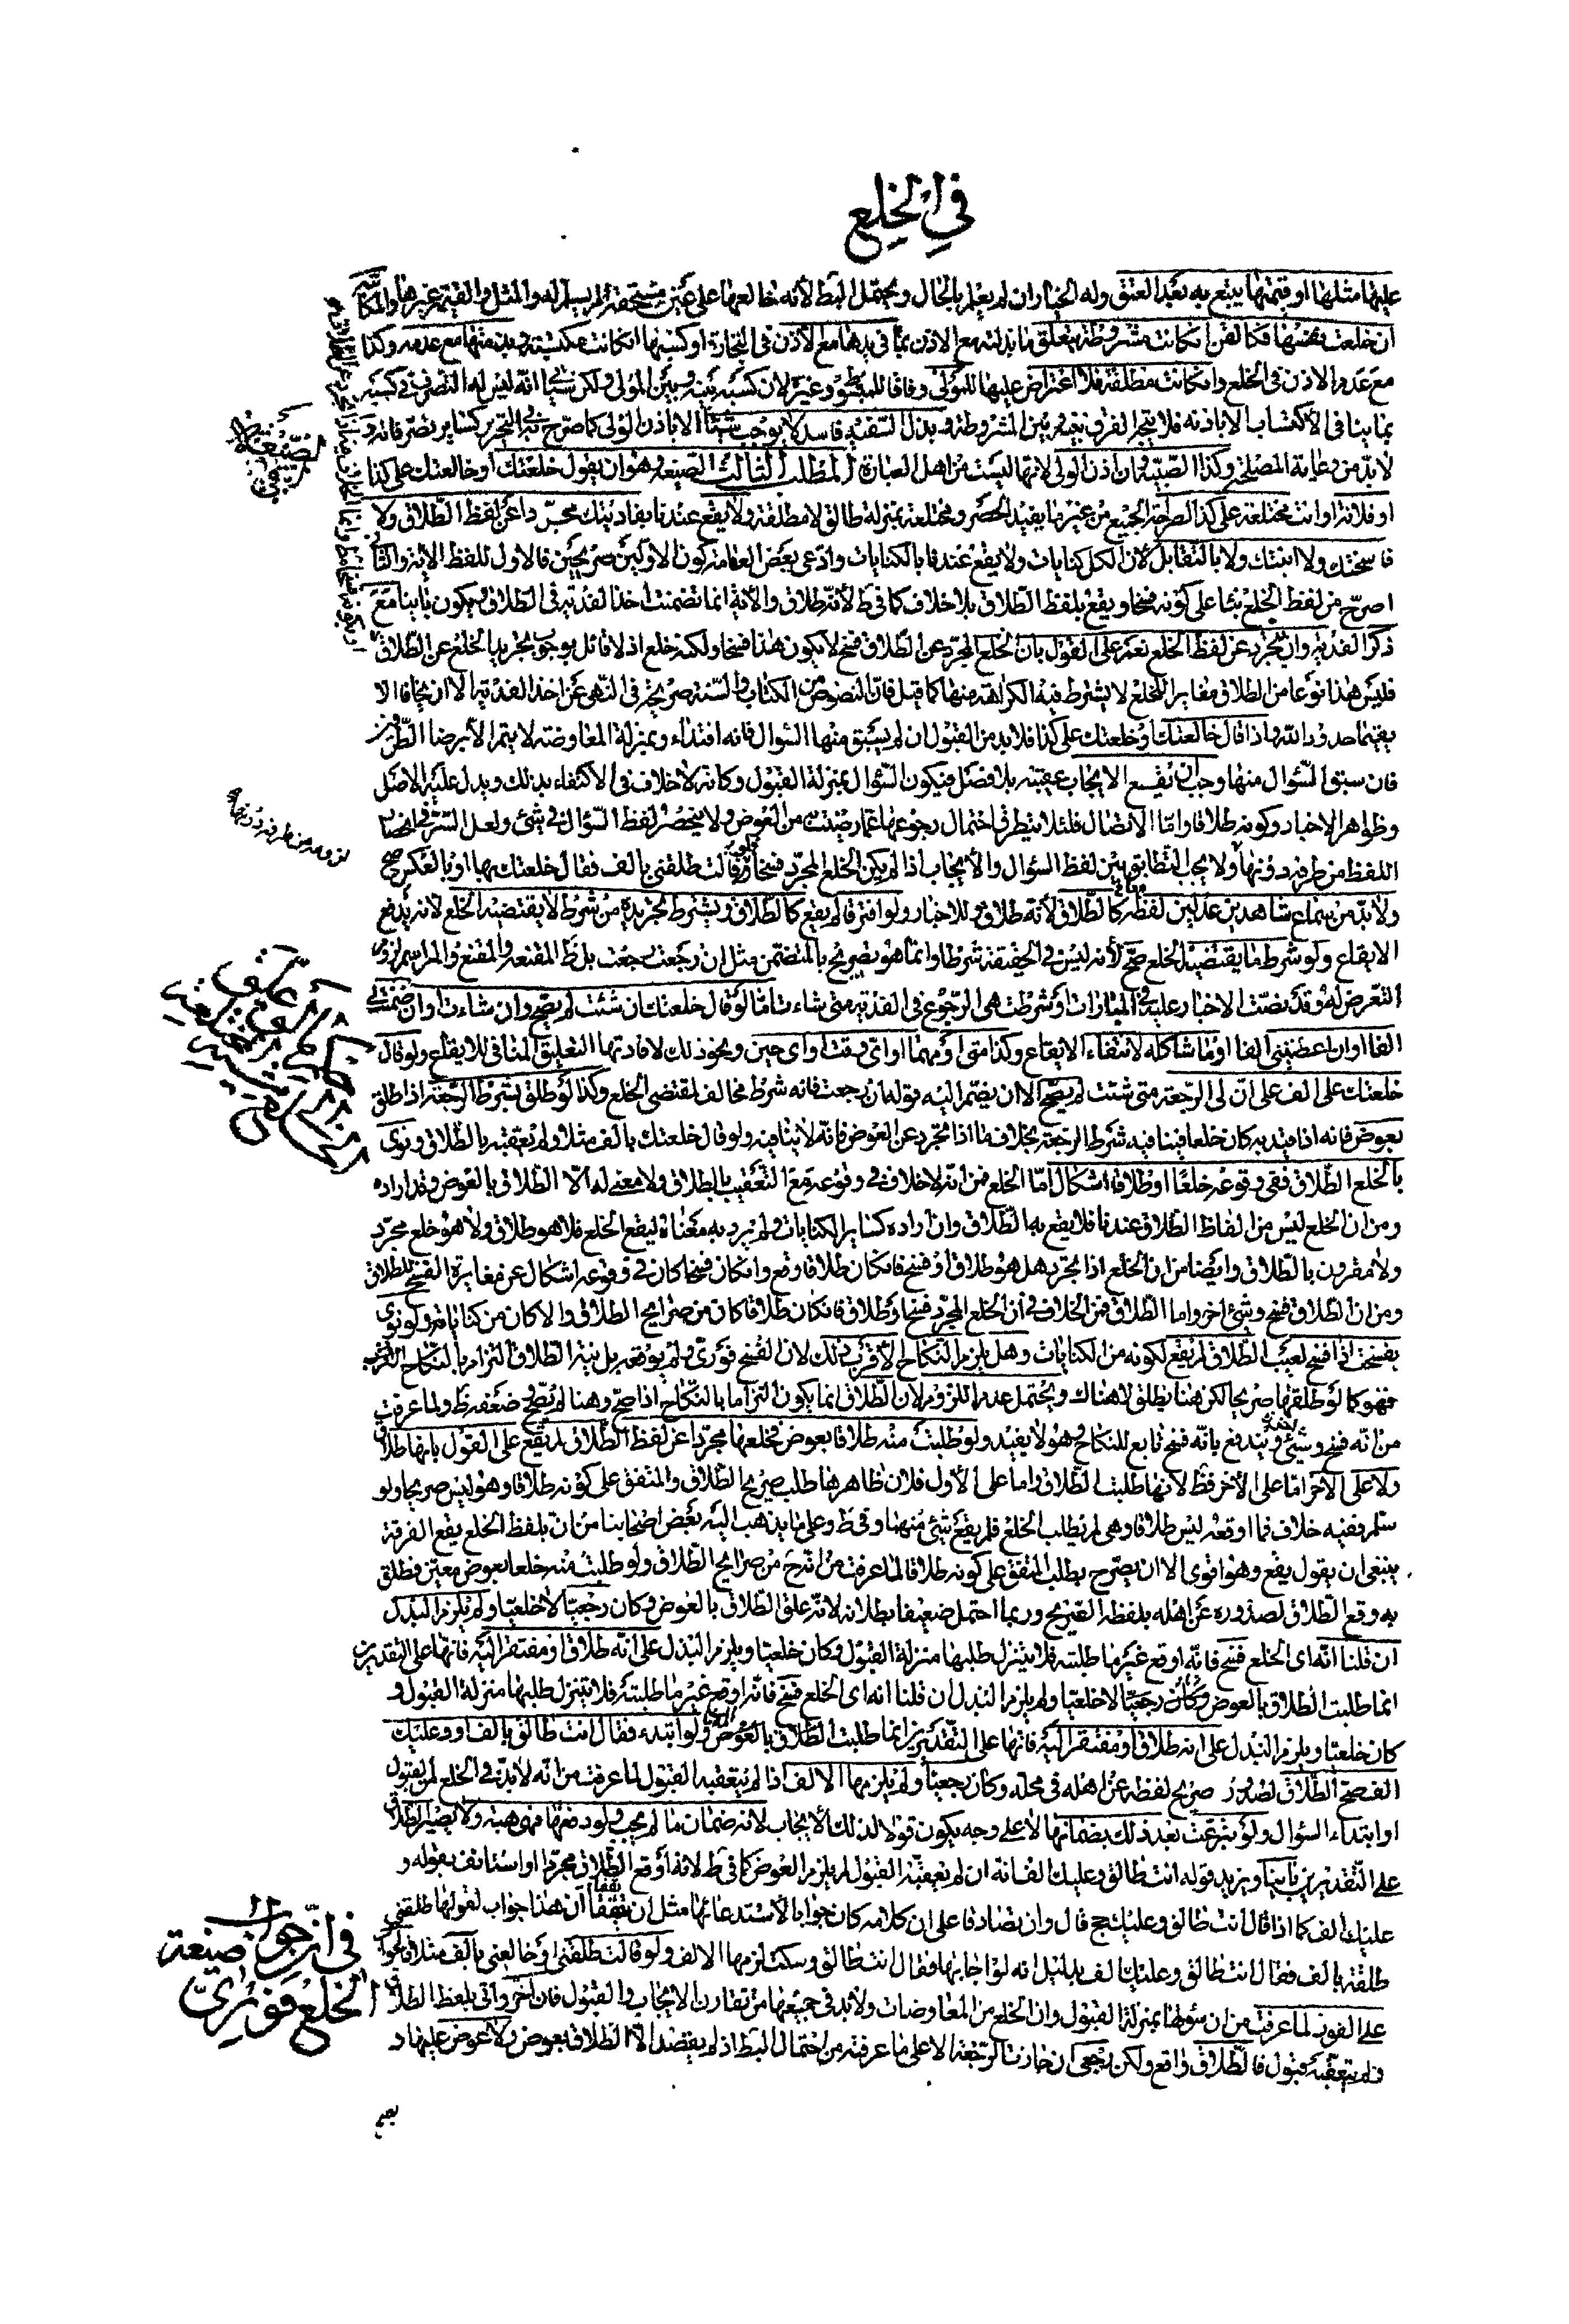 في الخلع
عليها مثلها او قيمتها يتبع به بعد العتق وله الخيار ان لم يعلم بالحال ويحتمل البط لأنه خالعها على عين مستحقة لم يسلم له والمثل والقيمة غيرها والمكاتبة
ان خلعت نفسها فكالقن ان كانت مشروطة يتعلق ما بذلته مع الاذن بما في يدها مع الأذن في التجارة او كسبها ان كانت مكتسبة وبذمتها مع عدمه وكذا
مع عدم الاذن في الخلع وان كانت مطلقة فلا اعتراض عليها للمولى وفاقا للمبسوط وغيره لأن كسبه بينه وبين المولى ولكن سيأتي انه ليس له التصرف في كسبه
بما ينافي الاكتساب الا باذنه فلا يتجه الفرق بينه وبين المشروطة وبذل السفيه فاسد لا يوجب شيئا الا باذن الولى كما صرح به في التحرير كساير تصرفاته و
لا بد من رعاية المصلحة وكذا الصبية وان اذن الولى لانها ليست من اهل العبارة المطلب الثالث الصيغة وهو ان يقول خلعتك او خالعتك على كذا
او فلانة او انت مختلعة على كذا لصراحة الجميع من غير ما يفيد الحصر ومختلعة بمنزلة طالق لا مطلقة ولا يقع عندنا بفاديتك مجردا عن لفظ الطلاق ولا
فاسختك ولا ابنتك ولا بالتقابل لأن الكل كنايات ولا يقع عندنا بالكنايات وادعى بعض العامة كون الاولين صريحين فالاول للفظ الاية والثاني
اصرح من لفظ الخلع بناء على كونه فسخا ويقع بلفظ الطلاق بلا خلاف كما في ط لأنه طلاق والأية انما تضمنت اخذ الفدية في الطلاق فيكون باينا مع
ذكر الفدية وان تجرد عن لفظ الخلع نعم على القول بان الخلع المجرد عن الطلاق فسخ لا يكون هذا فسخا ولكنه خلع اذ لا قائل بوجوب تجريد الخلع عن الطلاق
فليس هذا نوعا من الطلاق مغايرا للخلع لا يشترط فيه الكراهة منها كما قيل فان النصوص من الكتاب والسنة صريحة في النهي عن اخذ الفدية الا ان يخافا الا
يقيما حدود الله واذا قال خالعتك او خلعتك على كذا فلا بد من القبول ان لم يسبق منها السؤال فانه افتداء وبمنزلة المعاوضة لا يتم الا برضا الطرفين
فان سبق السؤال منها وجب ان يقع الايجاب عقيبه بلا فصل فيكون السؤال بمنزلة القبول وكانه لا خلاف في الاكتفاء بذلك ويدل عليه الاصل
وظواهر الاخبار وكونه طلاقا واما الاتصال فلئلا يتطرق احتمال رجوعها عما رضيت من العوض ولا ينحصر لفظ السؤال في شئ ولعل السر في انحصار
اللفظ من طرفه دونها ولا يجب التطابق بين لفظ السؤال والايجاب اذا لم يكن الخلع المجرد فسخا فلو قالت طلقني بالف فقال خلعتك بها او بالعكس صح
ولا بد من سماع شاهدين عدلين لفظه كالطلاق لأنه طلاق وللاخبار ولو افترقا لم يقع كالطلاق ويشترط تجريده من شرط لا يقتضيه الخلع لانه يدفع
الايقاع ولو شرط ما يقتضيه الخلع صح لأنه ليس في الحقيقة شرطا وانما هو تصريح بالمتضمن مثل ان رجعت رجعت
التعرض له وقد نصت الاخبار عليه في المباراة او شرطت هى الرجوع في الفدية متى شاءت اما لو قال خلعتك ان شئت لم يصح وان شاءت او ان ضمنت لى
الفا او ان اعطيتني الفا او ما شاكله لانتفاء الايقاع وكذا متى او مهما او اى وقت او اى حين ونحو ذلك لافادتها التعليق المنافي للايقاع ولو قال
خلعتك على الف على ان لى الرجعة متى شئت لم يصح الا ان يضم اليه قوله ان رجعت فانه شرط مخالف لمقتضى الخلع وكذا لو طلق بشرط الرجعة اذا طلق
بعوض فانه اذا قيد به كان خلعا فينافيه شرط الرجعة بخلاف ما اذا تجرد عن العوض فانه لا ينافيه ولو قال خلعتك بالف مثلا ولم يعقبه بالطلاق ونوى
بالخلع الطلاق ففي وقوعه خلعا او طلاقا اشكال اما الخلع فمن انه لا خلاف في وقوعه مع التعقيب بالطلاق ولا معنى له الا الطلاق بالعوض وقد اراده
ومن ان الخلع ليس من الفاظ الطلاق عندنا فلا يقع به الطلاق وان اراده كساير الكنايات ولم يرد به معناه ليقع الخلع فلا هو طلاق ولا هو خلع مجرد
ولا مقرون بالطلاق وايضا من ان الخلع اذا تجرد هل هو طلاق او فسخ فان كان طلاقا وقع وان كان فسخا كان في وقوعه اشكال عن مغايرة الفسخ للطلاق
ومن ان الطلاق فسخ وشئ اخر واما الطلاق فمن الخلاف في ان الخلع المجرد فسخ او طلاق فان كان طلاقا كان من صرايح الطلاق والا كان من كناياته ولو نوى
بفسخت اى افسخ لعيب الطلاق لم يقع لكونه من الكنايات وهل يلزم النكاح الأقرب ذلك لان الفسخ فورى ولم يوقعه بل نية الطلاق التزام بالنكاح
فهو كما لو طلقها صريحا لكن هنا يطلق لا هناك ويحتمل عدم اللزوم لان الطلاق انما يكون التزاما بالنكاح اذا صح وهنا لم يصح وضعفه ظ ولما عرفت
من انه فسخ وشئ ويندفع بانه فسخ تابع للنكاح وهو لا يفيد ولو طلبت منه طلاقا بعوض فخلعها مجردا عن لفظ الطلاق لم يقع على القول بانها طلاق
ولا على الاخر اما على الأخر فظ لانها طلبت الطلاق واما على الأول فلان ظاهرها طلب صريح الطلاق والمتفق على كونه طلاقا وهو ليس صريحا ولو
سلم ففيه خلاف فما اوقعه ليس طلاقا وهى لم تطلب الخلع فلم يقع شئ منهما وفي ط وعلى ما يذهب اليه بعض اصحابنا من ان بلفظ الخلع يقع الفرقة
ينبغى ان يقول يقع وهو اقوى الا ان يصرح بطلب المتفق على كونه طلاقا لما عرفت من انه ح من صرايح الطلاق ولو طلبت منه خلعا بعوض معين فطلق
به وقع الطلاق لصدوره عن اهله بلفظه الصريح وربما احتمل ضعيفا بطلانه لانه علق الطلاق بالعوض وكان رجعيا لا خلعيا ولم يلزم البذل
ان قلنا انه اى الخلع فسخ فانه اوقع غير ما طلبته فلا يتنزل طلبها منزلة القبول وكان خلعيا ويلزم البذل على انه طلاق او مفتقر اليه فانها على التقديرين
انما طلبت الطلاق بالعوض وكان رجعيا لا خلعيا ولم يلزم البذل ان قلنا انه اى الخلع فسخ فانه اوقع غير ما طلبته فلا يتنزل طلبها منزلة القبول و
كان خلعيا ويلزم البذل على انه طلاق او مفتقر اليه فانها على التقديرين انما طلبت الطلاق بالعوض ولو ابتدء فقال انت طالق بالف او وعليك
الف صح الطلاق لصدور صريح لفظه عن اهله في محله وكان رجعيا ولم يلزمها الالف اذا لم يتعقبه القبول لما عرفت من انه لا بد في الخلع من القبول
او ابتداء السؤال ولو تبرعت بعد ذلك بضمانها لا على وجه يكون قبولا لذلك الايجاب لانه ضمان ما لم يجب ولو دفعتها فهى هبة ولا يصير الطلاق
على التقديرين باينا ويزيد قوله انت طالق وعليك الف انه ان لم يعقبه القبول لم يلزم العوض كما في ط لانه اوقع الطلاق مجردا او استانف بقوله و
عليك الف كما اذا قال انت طالق وعليك حج قال وان تصادقا على ان كلامه كان جوابا لاستدعائها مثل ان يتفقا ان هذا جواب لقولها طلقني
طلقة بالف فقال انت طالق وعليك الف بدليل انه لو اجابها فقال انت طالق وسكت لزمها الالف ولو قالت طلقني او خالعني بالف مثلا فالجواب
على الفور لما عرفت من ان سؤالها بمنزلة القبول وان الخلع من المعاوضات ولا بد في جميعها من تقارن الايجاب والقبول فان اخر واتى بلفظ الطلاق
ولم يتعقبه قبول فالطلاق واقع ولكن رجعى ان جازت الرجعة الا على ما عرفته من احتمال البط اذ لم يقصد الا الطلاق بعوض ولا عوض عليها و
لزومه من طرفه دونها
في ان جواب صيغة
الخلع فورىّ